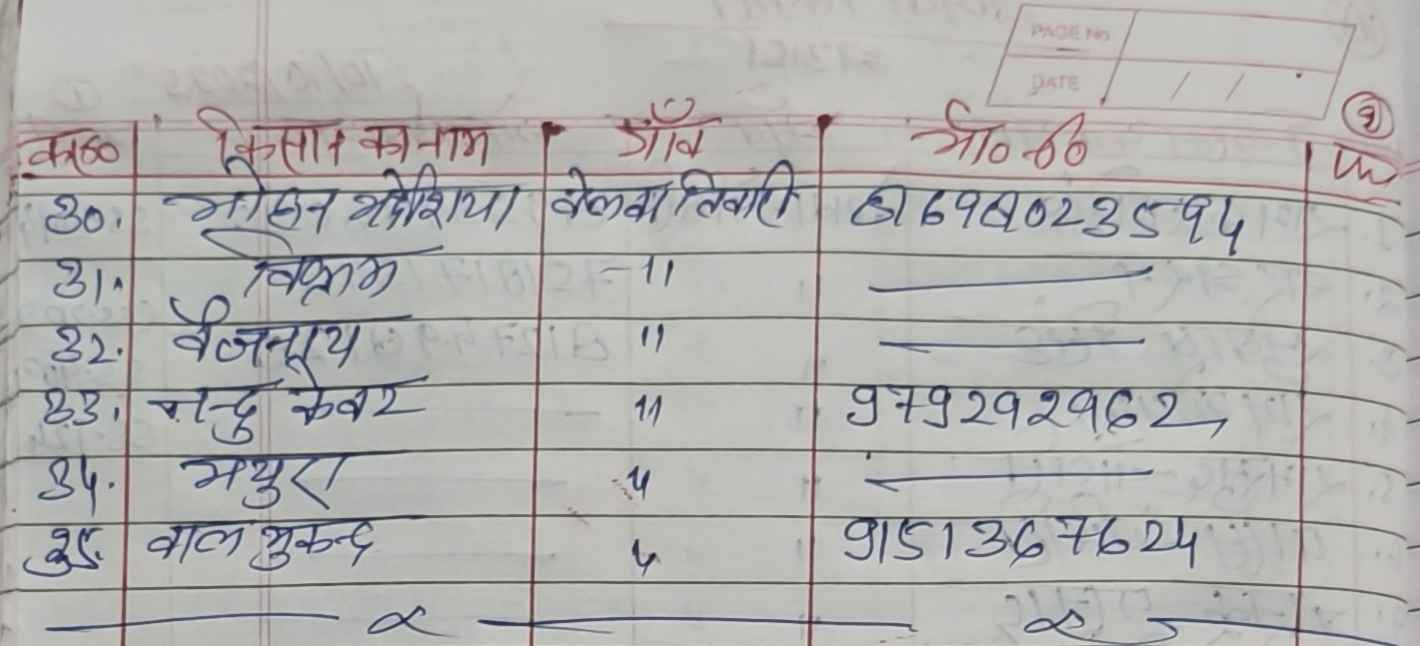 PAGE No
DATE / /
क्र०सं० किसान का नाम गाँव मो० नं०
30. मोहन मद्देशिया बेलवा तिवारी
31. विक्रम -11
32. वैजनाथ 11
33. नन्दु केवट 11 9792929962
34. मथुरा 11
35. बाल मुकुन्द 11 9151367624